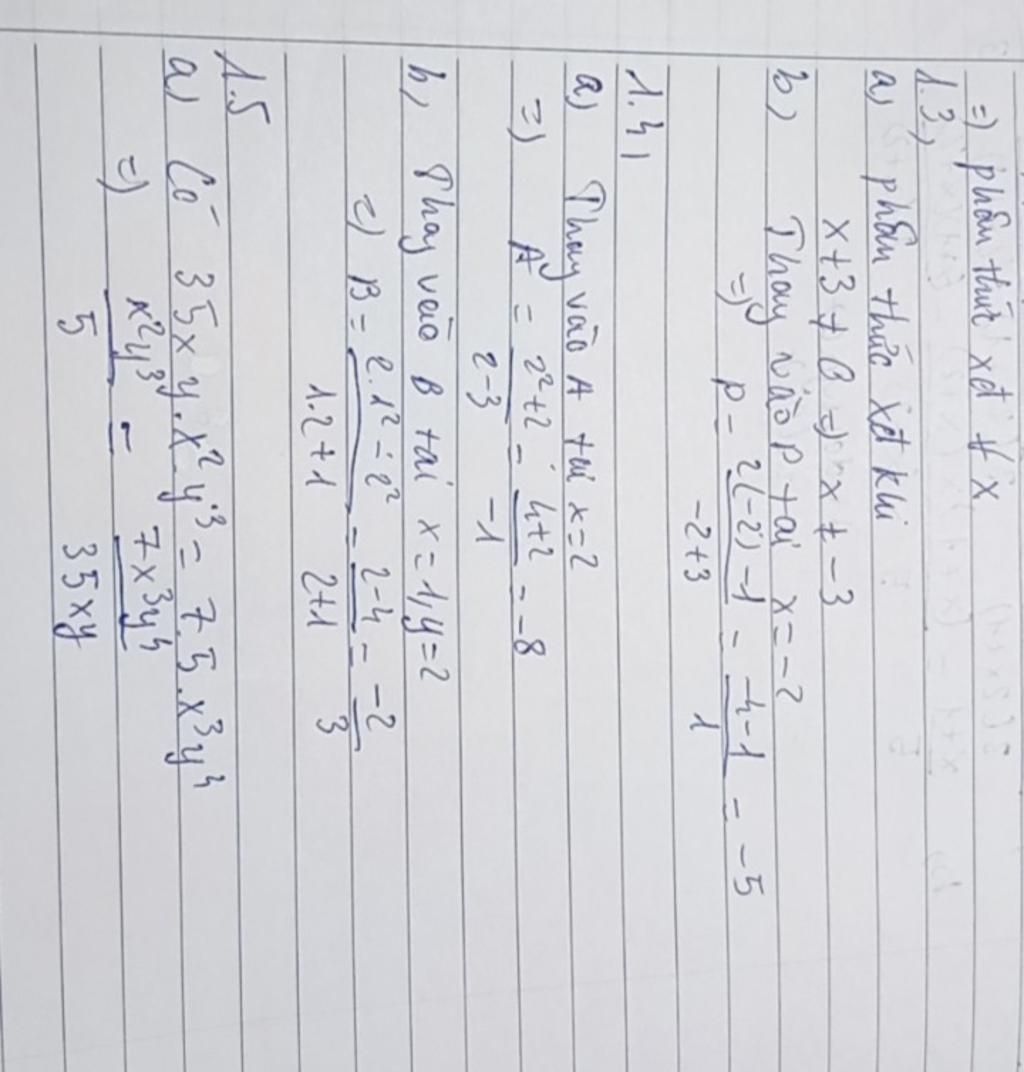 =) phân thức xđ ∀x
1.3,
a, phân thức xđ khi
x+3 ≠ 0 =) x ≠ -3
b, Thay vào P tại x = -2
=) P = \frac{2(-2)-1}{-2+3} = \frac{-4-1}{1} = -5
1.4,
a) Thay vào A tại x=2
=) A = \frac{2²+2}{2-3} = \frac{4+2}{-1} = -8
b, Thay vào B tại x=1, y=2
=) B = \frac{2.1²-2²}{1.2+1} = \frac{2-4}{2+1} = \frac{-2}{3}
1.5
a) Có 35xy.x²y³ = 7.5.x³y⁴
=) \frac{x²y³}{5} = \frac{7x³y⁴}{35xy}